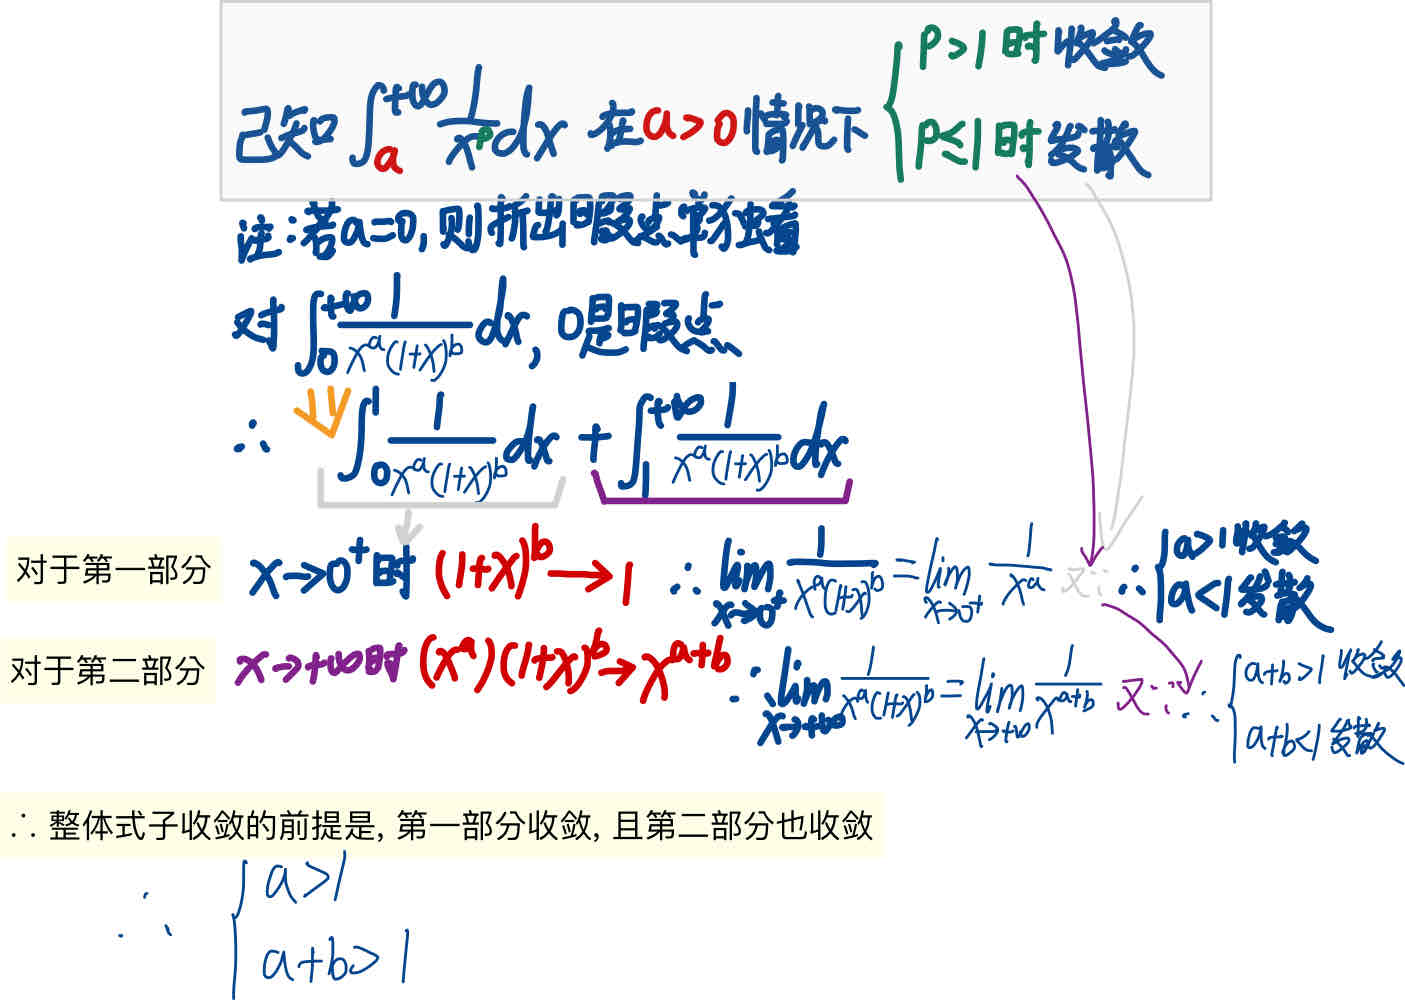 已知 ∫_a^{+∞} 1/x^p dx 在a>0情况下 { p>1时收敛
p≤1时发散
注:若a=0,则折出暇点单独看
对 ∫_0^{+∞} 1/(x^a(1+x)^b) dx, 0是暇点
∴ ∫_0^1 1/(x^a(1+x)^b) dx + ∫_1^{+∞} 1/(x^a(1+x)^b) dx
对于第一部分 x→0⁺时 (1+x)^b→1 ∴ lim_{x→0⁺} 1/(x^a(1+x)^b) = lim_{x→0⁺} 1/x^a ∴ { a>1收敛
a<1发散
对于第二部分 x→+∞时 (x^a)(1+x)^b→x^{a+b} ∴ lim_{x→+∞} 1/(x^a(1+x)^b) = lim_{x→+∞} 1/x^{a+b} ∴ { a+b>1收敛
a+b<1发散
∴ 整体式子收敛的前提是, 第一部分收敛, 且第二部分也收敛
∴ { a>1
a+b>1